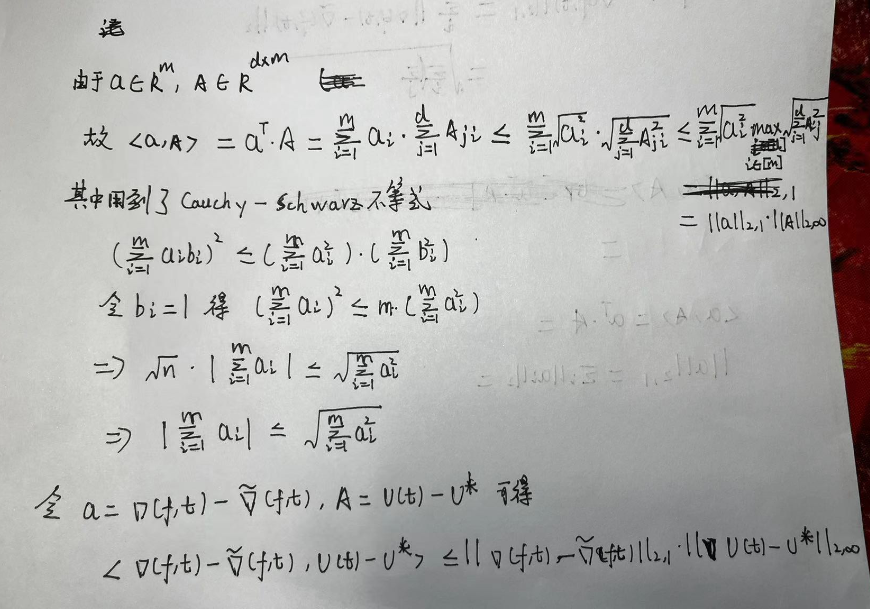 由于 a∈R^m, A∈R^{d×m}
故 <a,A> = a^T·A = \sum_{i=1}^{m} a_i · \sum_{j=1}^{d} A_{ji} ≤ \sum_{i=1}^{m} \sqrt{a_i^2} · \sqrt{\sum_{j=1}^{d} A_{ji}^2} ≤ \sum_{i=1}^{m} \sqrt{a_i^2} max_{i∈[m]} \sqrt{\sum_{j=1}^{d} A_j^2}
= ||a||_{2,1}·||A||_{2,∞}
其中用到了 Cauchy-Schwarz 不等式
(\sum_{i=1}^{m} a_i b_i)^2 ≤ (\sum_{i=1}^{m} a_i^2)·(\sum_{i=1}^{m} b_i^2)
令 b_i=1 得 (\sum_{i=1}^{m} a_i)^2 ≤ m·(\sum_{i=1}^{m} a_i^2)
=> \sqrt{n}·|\sum_{i=1}^{m} a_i| ≤ \sqrt{\sum_{i=1}^{m} a_i^2}
=> |\sum_{i=1}^{m} a_i| ≤ \sqrt{\sum_{i=1}^{m} a_i^2}
令 a = ∇(f,t) - \tilde{∇}(f,t), A = U(t) - U^* 可得
<∇(f,t) - \tilde{∇}(f,t), U(t) - U^*> ≤ ||∇(f,t) - \tilde{∇}(f,t)||_{2,1}·|| U(t) - U^*||_{2,∞}